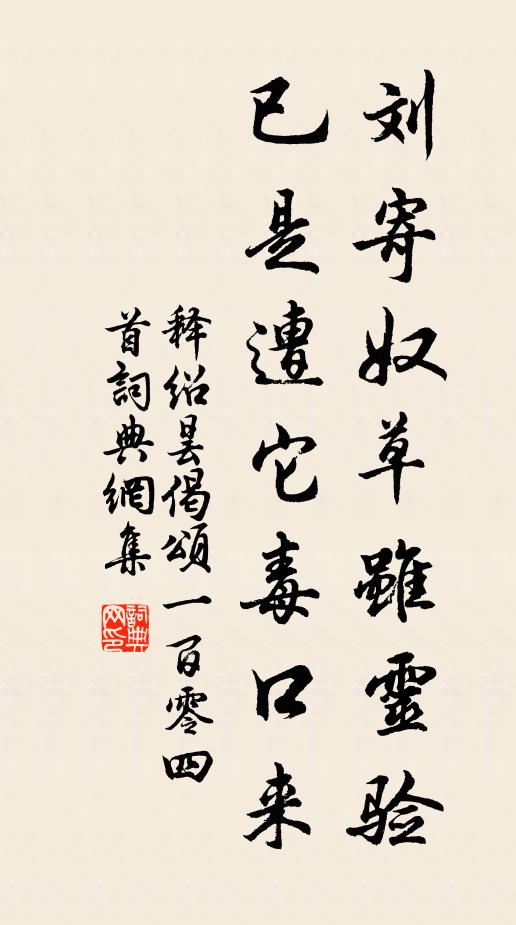 刘寄奴草雖靈验
已是遭它毒口来
释绍昙偈頌一百零四
首詞典網集
詞典
网印